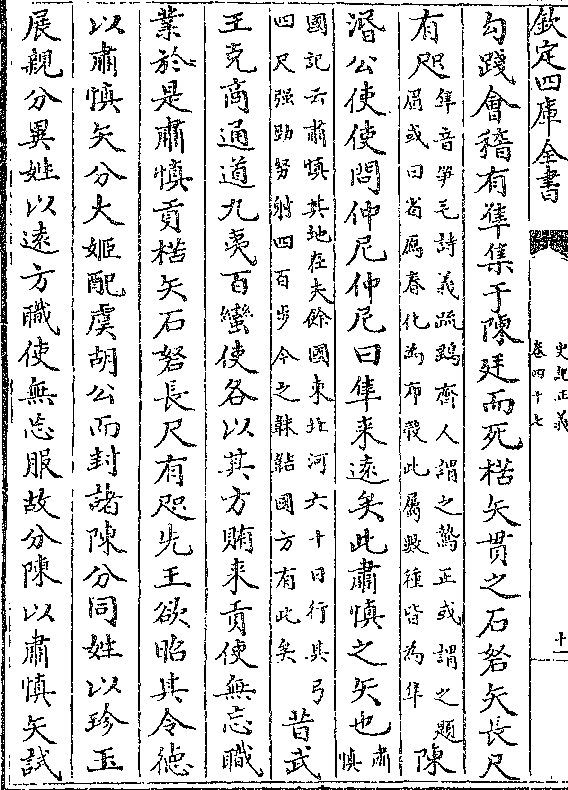 欽定四庫全書
史記正義
卷四十七
十一
勾踐會稽有隼集于陳廷而死楛矢貫之石砮矢長尺
有咫
隼音笋毛詩義疏鷂齊人謂之鷙正或謂之題
肩或曰省鴈春化為布榖此屬數種皆為隼
陳
湣公使使問仲尼仲尼曰隼来逺矣此肅慎之矢也
肅
慎
國記云肅慎其地在夫餘國東北河六十日行其弓
四尺强勁弩射四百步今之靺鞨國方有此矢
昔武
王克商通道九夷百蠻使各以其方賄来貢使無忘職
業於是肅慎貢楛矢石砮長尺有咫先王欲昭其令徳
以肅慎矢分大姬配虞胡公而封諸陳分同姓以珍玉
展親分異姓以逺方職使無忘服故分陳以肅慎矢試